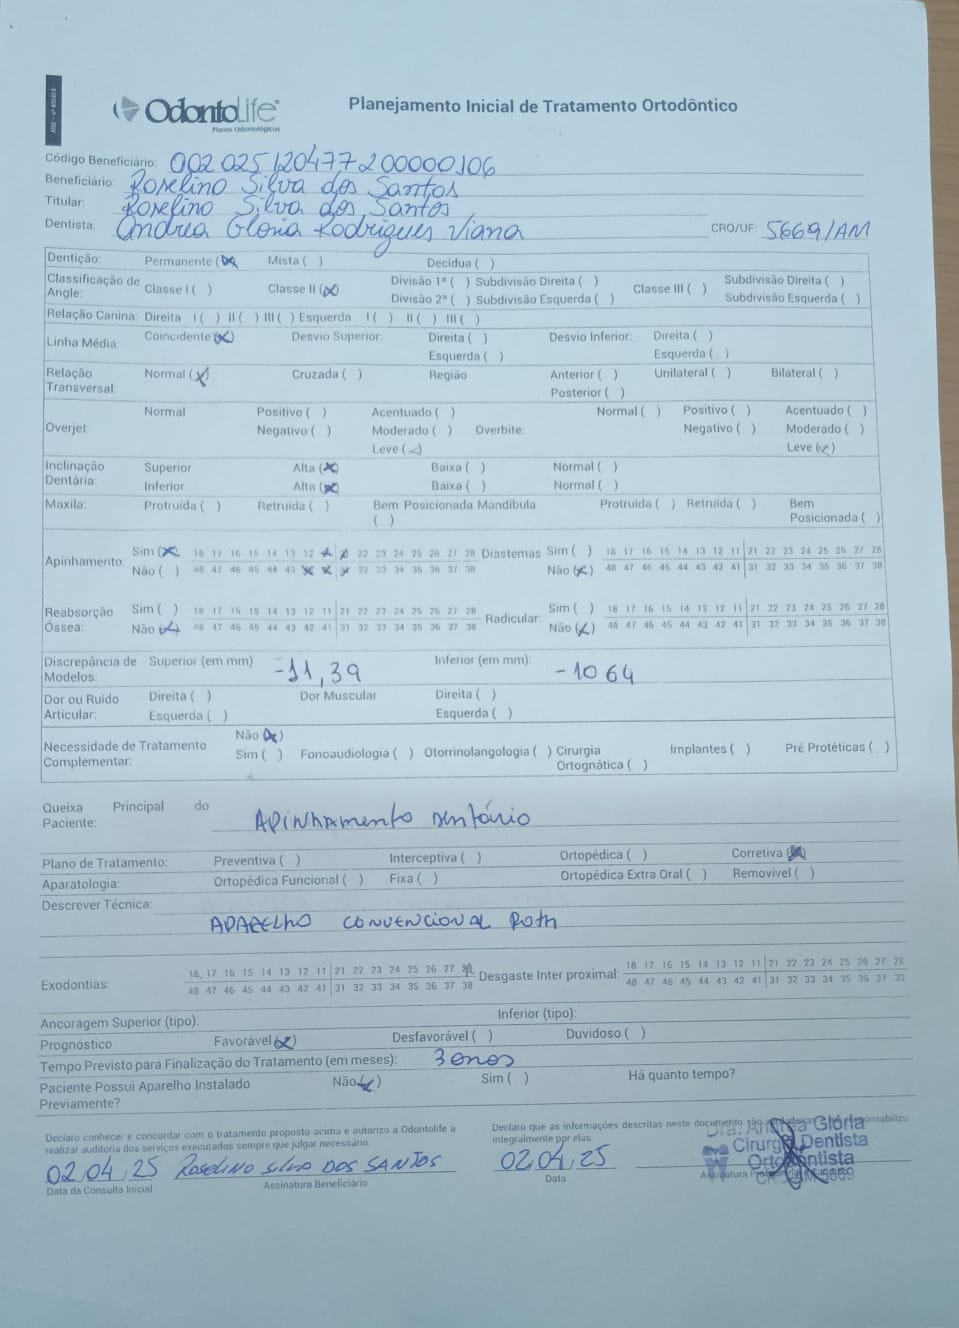 OdontoLife
Planos Odontológicos
Planejamento Inicial de Tratamento Ortodôntico
Código Beneficiário: 002025120477200000106
Beneficiário: Roselino Silva dos Santos
Titular: Roselino Silva dos Santos
Dentista: Andrea Gloria Rodrigues Viana CRO/UF: 5669/AM
Dentição: Permanente (X) Mista ( ) Decídua ( )
Classificação de Angle: Classe I ( ) Classe II (X) Divisão 1ª ( ) Subdivisão Direita ( ) Classe III ( ) Subdivisão Direita ( )
Divisão 2ª ( ) Subdivisão Esquerda ( ) Subdivisão Esquerda ( )
Relação Canina: Direita I ( ) II ( ) III ( ) Esquerda I ( ) II ( ) III ( )
Linha Média: Coincidente (X) Desvio Superior: Direita ( ) Desvio Inferior: Direita ( )
Esquerda ( ) Esquerda ( )
Relação Transversal: Normal (X) Cruzada ( ) Região Anterior ( ) Unilateral ( ) Bilateral ( )
Posterior ( )
Overjet: Normal Positivo ( ) Acentuado ( ) Overbite: Normal ( ) Positivo ( ) Acentuado ( )
Negativo ( ) Moderado ( ) Negativo ( ) Moderado ( )
Leve (X) Leve (X)
Inclinação Dentária: Superior Alta (X) Baixa ( ) Normal ( )
Inferior Alta (X) Baixa ( ) Normal ( )
Maxila: Protruída ( ) Retruída ( ) Bem Posicionada ( ) Mandíbula Protruída ( ) Retruída ( ) Bem Posicionada ( )
Apinhamento: Sim (X) 18 17 16 15 14 13 12 X X 22 23 24 25 26 27 28 Diastemas Sim ( ) 18 17 16 15 14 13 12 11 21 22 23 24 25 26 27 28
Não ( ) 48 47 46 45 44 43 X X X 32 33 34 35 36 37 38 Não (X) 48 47 46 45 44 43 42 41 31 32 33 34 35 36 37 38
Reabsorção Óssea: Sim ( ) 18 17 16 15 14 13 12 11 21 22 23 24 25 26 27 28 Radicular: Sim ( ) 18 17 16 15 14 13 12 11 21 22 23 24 25 26 27 28
Não (X) 48 47 46 45 44 43 42 41 31 32 33 34 35 36 37 38 Não (X) 48 47 46 45 44 43 42 41 31 32 33 34 35 36 37 38
Discrepância de Modelos: Superior (em mm) -11,39 Inferior (em mm): -10 64
Dor ou Ruído Articular: Direita ( ) Dor Muscular Direita ( )
Esquerda ( ) Esquerda ( )
Necessidade de Tratamento Complementar: Não (X)
Sim ( ) Fonoaudiologia ( ) Otorrinolangologia ( ) Cirurgia Ortognática ( ) Implantes ( ) Pré Protéticas ( )
Queixa Principal do Paciente: Apinhamento Dentário
Plano de Tratamento: Preventiva ( ) Interceptiva ( ) Ortopédica ( ) Corretiva (X)
Aparatologia: Ortopédica Funcional ( ) Fixa ( ) Ortopédica Extra Oral ( ) Removível ( )
Descrever Técnica:
APARELHO CONVENCIONAL Roth
Exodontias: 18 17 16 15 14 13 12 11 21 22 23 24 25 26 27 28 Desgaste Inter proximal: 18 17 16 15 14 13 12 11 21 22 23 24 25 26 27 28
48 47 46 45 44 43 42 41 31 32 33 34 35 36 37 38 48 47 46 45 44 43 42 41 31 32 33 34 35 36 37 38
Ancoragem Superior (tipo): Inferior (tipo):
Prognóstico Favorável (X) Desfavorável ( ) Duvidoso ( )
Tempo Previsto para Finalização do Tratamento (em meses): 3 anos
Paciente Possui Aparelho Instalado Previamente? Não (X) Sim ( ) Há quanto tempo?
Declaro conhecer e concordar com o tratamento proposto acima e autorizo a Odontolife a
realizar auditoria dos serviços executados sempre que julgar necessário.
Declaro que as informações descritas neste documento são
integralmente por elas.
02,04,25 Roselino Silva dos Santos
Data da Consulta Inicial Assinatura Beneficiário
02,04,25
Data
Dra. Glória
Cirurgiã Dentista
Ortodontista